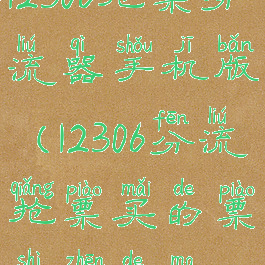 liú qì shǒu jī bǎn
流器手机版
fēn liú
(12306分流
qiǎng piào mǎi de piào
抢票买的票
shì zhēn de ma